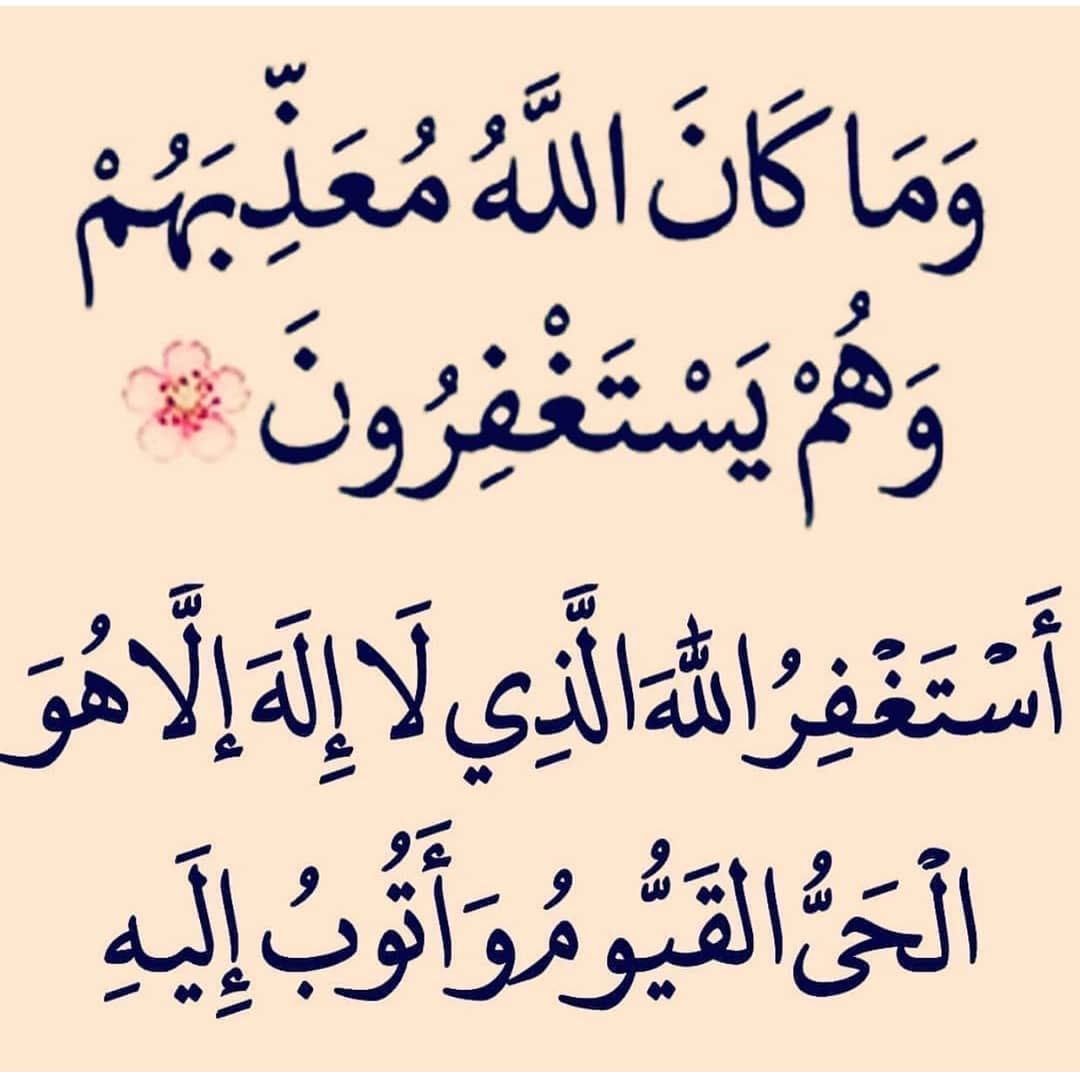 وَمَا كَانَ اللَّهُ مُعَذِّبَهُمْ
وَهُمْ يَسْتَغْفِرُونَ
أَسْتَغْفِرُ اللهَ الَّذِي لَا إِلَهَ إِلَّا هُوَ
الْحَىُّ القَيُّومُ وَأَتُوبُ إِلَيهِ